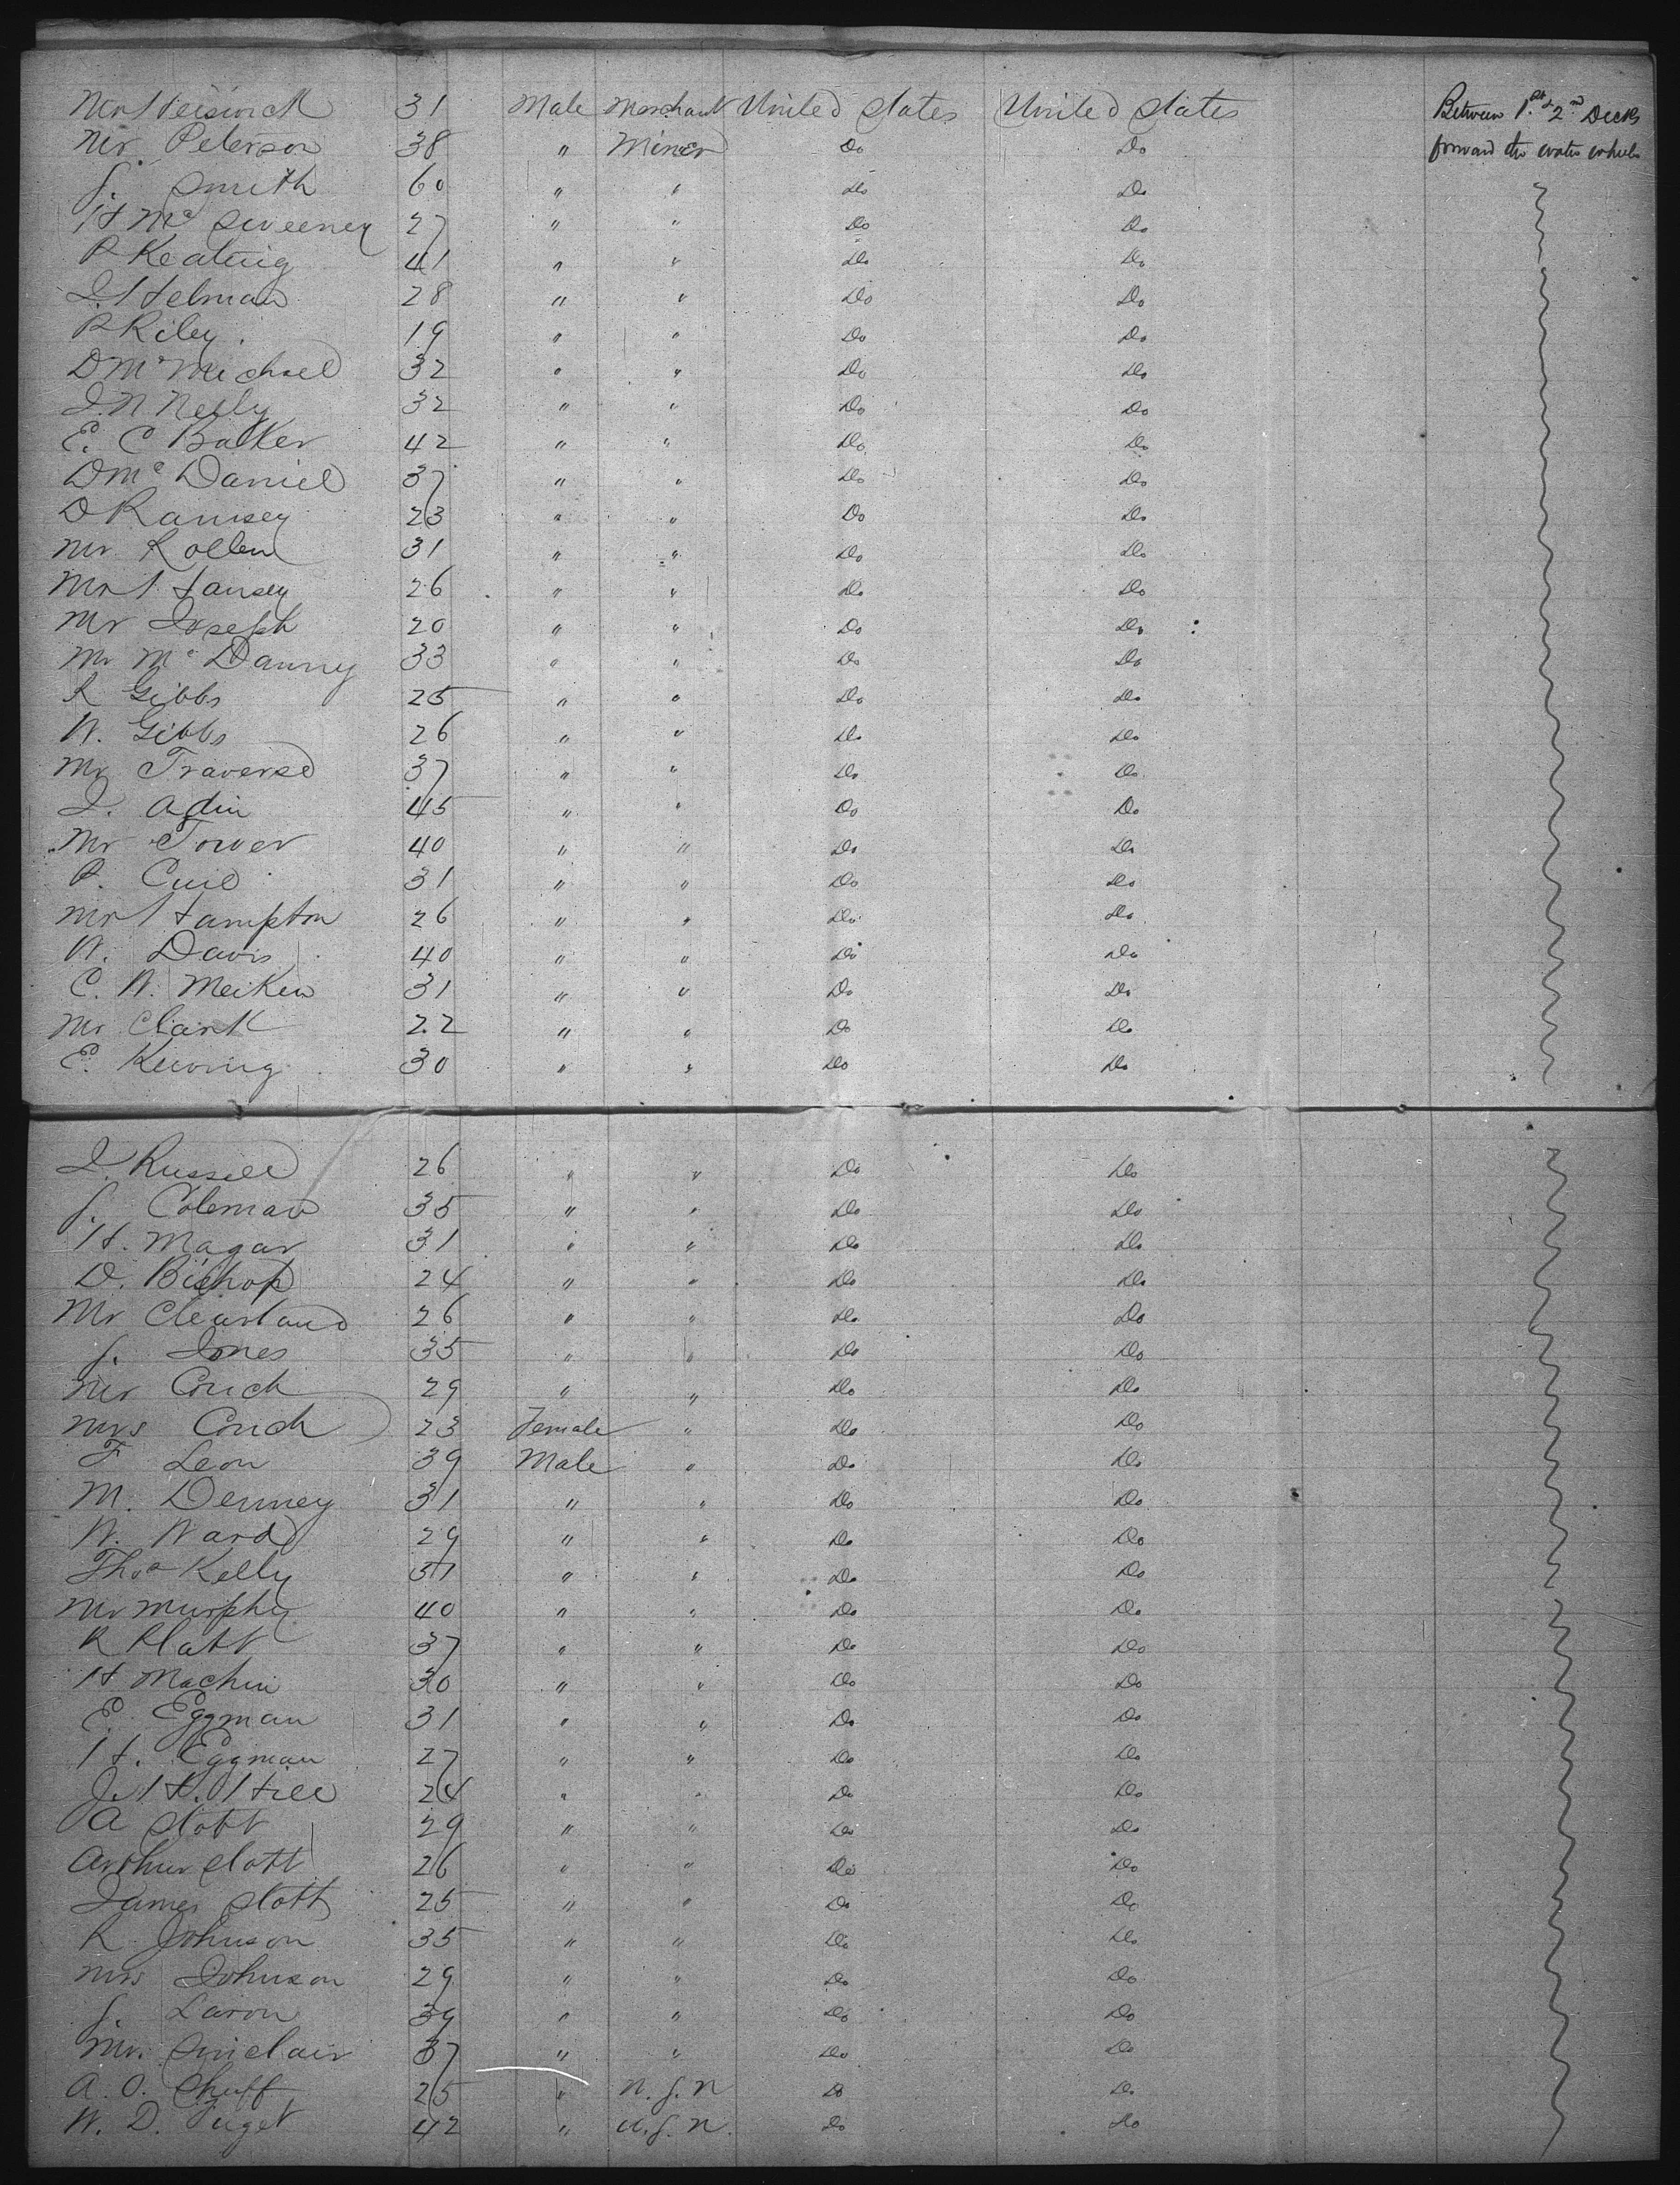 Mr Heiswick 31 Male Merchant United States United States Between 1st & 2nd Decks
Mr Peterson 38 " Miner Do Do forward the water wheels
J. Smith 60 " " Do Do
H Mc Sweeney 27 " " Do Do
P Keating 41 " " Do Do
J. Helman 28 " " Do Do
P Riley. 19 " " Do Do
D Mc Michael 32 " " Do Do
J. N Neely 32 " " Do Do
E. C Baker 42 " " Do Do
D Mc Daniel 37 " " Do Do
D Ramsey 23 " " Do Do
Mr Rollen 31 " " Do Do
Mr Hansey 26 " " Do Do
Mr Joseph 20 " " Do Do
Mr Mc Danny 33 " " Do Do
R Gibbs 25 " " Do Do
W. Gibbs 26 " " Do Do
Mr Traverse 37 " " Do Do
J. Adin 45 " " Do Do
Mr Tower 40 " " Do Do
P. Cuid 31 " " Do Do
Mr Hampton 26 " " Do Do
W. Davis 40 " " Do Do
C. W. Meiken 31 " " Do Do
Mr Clark 22 " " Do Do
E. 30 " " Do Do
J. Russell 26 " " Do Do
J. Coleman 35 " " Do Do
H. Magar 31 " " Do Do
D. Bishop 24 " " Do Do
Mr Cleavland 26 " " Do Do
J. Jones 35 " " Do Do
Mr Couch 29 " " Do Do
Mrs Couch 23 Female " Do Do
F Leon 39 Male " Do Do
M. Denney 31 " " Do Do
W. Ward 29 " " Do Do
Thos Kelly 31 " " Do Do
Mr Murphy 40 " " Do Do
R Platt 37 " " Do Do
H Machin 30 " " Do Do
E. Eggman 31 " " Do Do
H. Eggman 27 " " Do Do
J. H. Hill 24 " " Do Do
A Stott 29 " " Do Do
Arthur Stott 26 " " Do Do
James Stott 25 " " Do Do
R Johnson 35 " " Do Do
Mrs Johnson 29 " " Do Do
J. Laron 39 " " Do Do
Mr. Sinclair 37 " " Do Do
A. O. Shuff 25 " Do Do
W. D. Puget 42 " Do Do